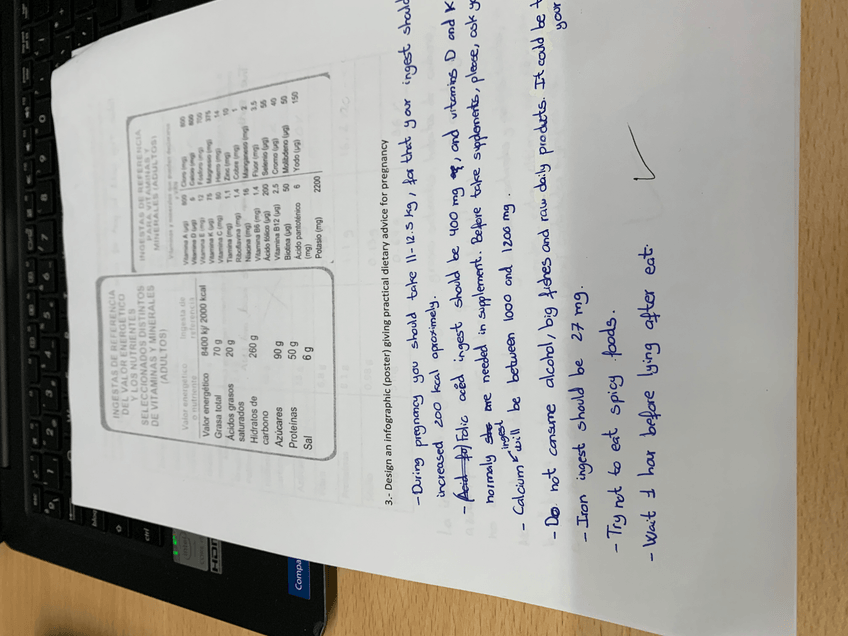 INGESTAS DE REFERENCIA
DEL VALOR ENERGÉTICO
Y LOS NUTRIENTES
SELECCIONADOS DISTINTOS
DE VITAMINAS Y MINERALES
(ADULTOS)
Valor energético o nutriente
Ingesta de referencia
Valor energético 8400 kj/ 2000 kcal
Grasa total 70 g
Ácidos grasos saturados 20 g
Hidratos de carbono 260 g
Azúcares 90 g
Proteínas 50 g
Sal 6 g
INGESTAS DE REFERENCIA
PARA VITAMINAS Y
MINERALES (ADULTOS)
Vitamina A (µg) 800 Cloro (mg) 800
Vitamina D (µg) 5 Calcio (mg) 800
Vitamina E (mg) 12 Fósforo (mg) 700
Vitamina K (µg) 75 Magnesio (mg) 375
Vitamina C (mg) 80 Hierro (mg) 14
Tiamina (mg) 1.1 Zinc (mg) 10
Riboflavina (mg) 1.4 Cobre (mg) 1
Niacina (mg) 16 Manganeso (mg) 2
Vitamina B6 (mg) 1.4 Fluor (mg) 3.5
Ácido fólico (µg) 200 Selenio (µg) 55
Vitamina B12 (µg) 2.5 Cromo (µg) 40
Biotina (µg) 50 Molibdeno (µg) 50
Ácido pantoténico (mg) 6 Yodo (µg) 150
Potasio (mg) 2200
3.- Design an infographic (poster) giving practical dietary advice for pregnancy
- During pregnancy you should take 11-12.5 kg, for that your ingest should
increased 200 kcal aproximely.
- Folic acid ingest should be 400 mg, and vitamins D and K
normaly are needed in supplement. Before take supplements, please, ask
- Calcium ingest will be between 1000 and 1200 mg.
- Do not consume alcohol, big fishes and raw daily products. It could be
your
- Iron ingest should be 27 mg.
- Try not to eat spicy foods.
- Wait 1 hour before lying after eat.
Compa